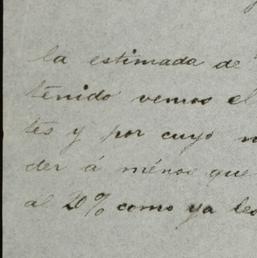 la estimada de
tenido vemos el
tes y por cuyo
der á ménos que
al 20% como ya